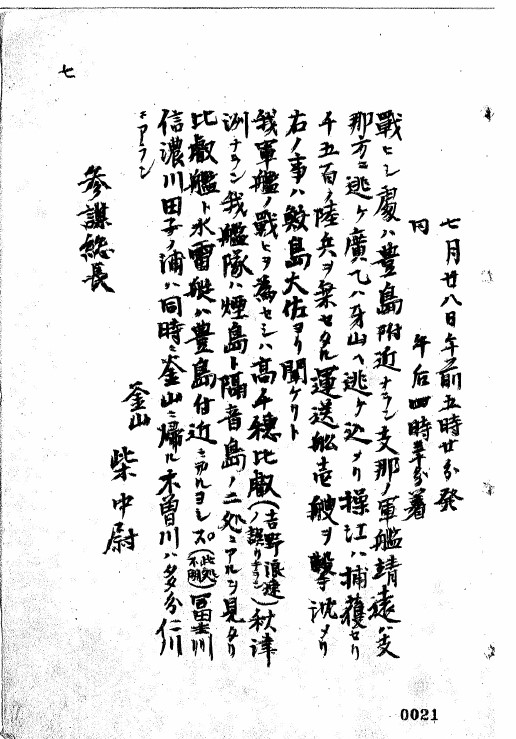 七
七月廿八日午前五時廿分発
同 午后四時半分着
戰ヒシ處ハ豊島附近ナラン支那ノ軍艦靖遠ハ支
那方ニ逃ケ廣乙ハ牙山ヘ逃ケ込メリ操江ハ捕獲セリ
千五百ノ陸兵ヲ乗セタル運送船壱艘ヲ撃沈メリ
右ノ事ハ鮫島大佐ヨリ聞ケリト
我軍艦ノ戰ヒヲ為セシハ高千穂比叡(吉野浪速ノ誤リナラン)秋津
洲ナラン我艦隊ハ煙島ト隔音島ノ二処ニアルヲ見タリ
比叡艦ト水雷艇ハ豊島付近ニアルヨシス(此処不明)富士川
信濃川田子ノ浦ハ同時ニ釜山ニ帰ル木曽川ハ多分仁川
ニアラン
釜山 柴中尉
参謀総長
0021